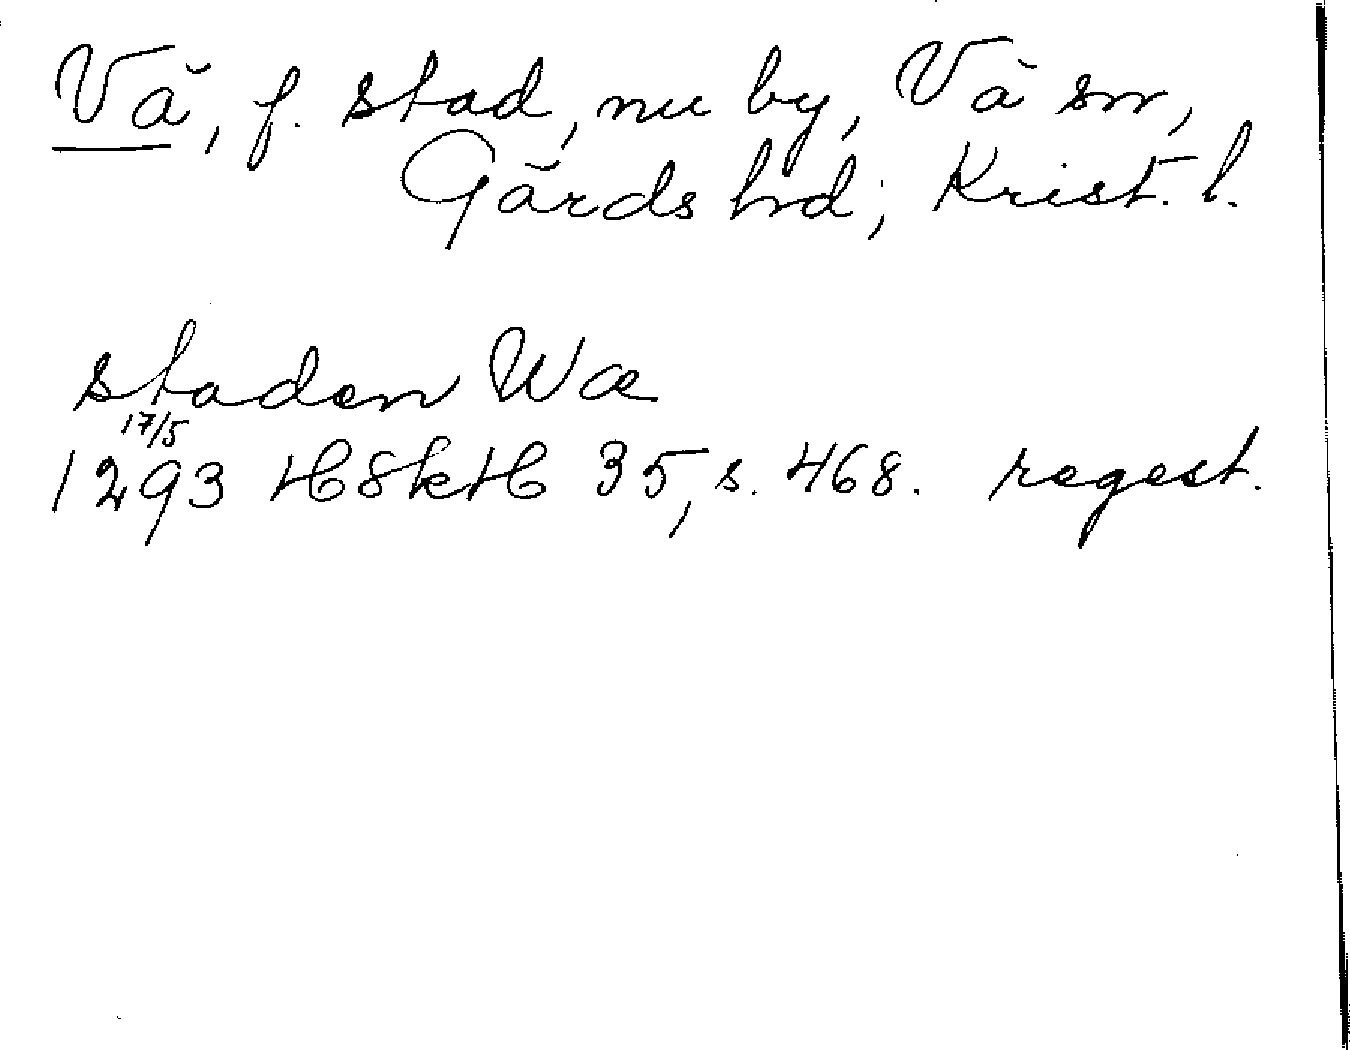 Vä, f. stad, nu by, Vä sn,
Gärds hd; Krist. l.
staden Wæ
17/5
1293 HSkH 35, s. 468. regest.